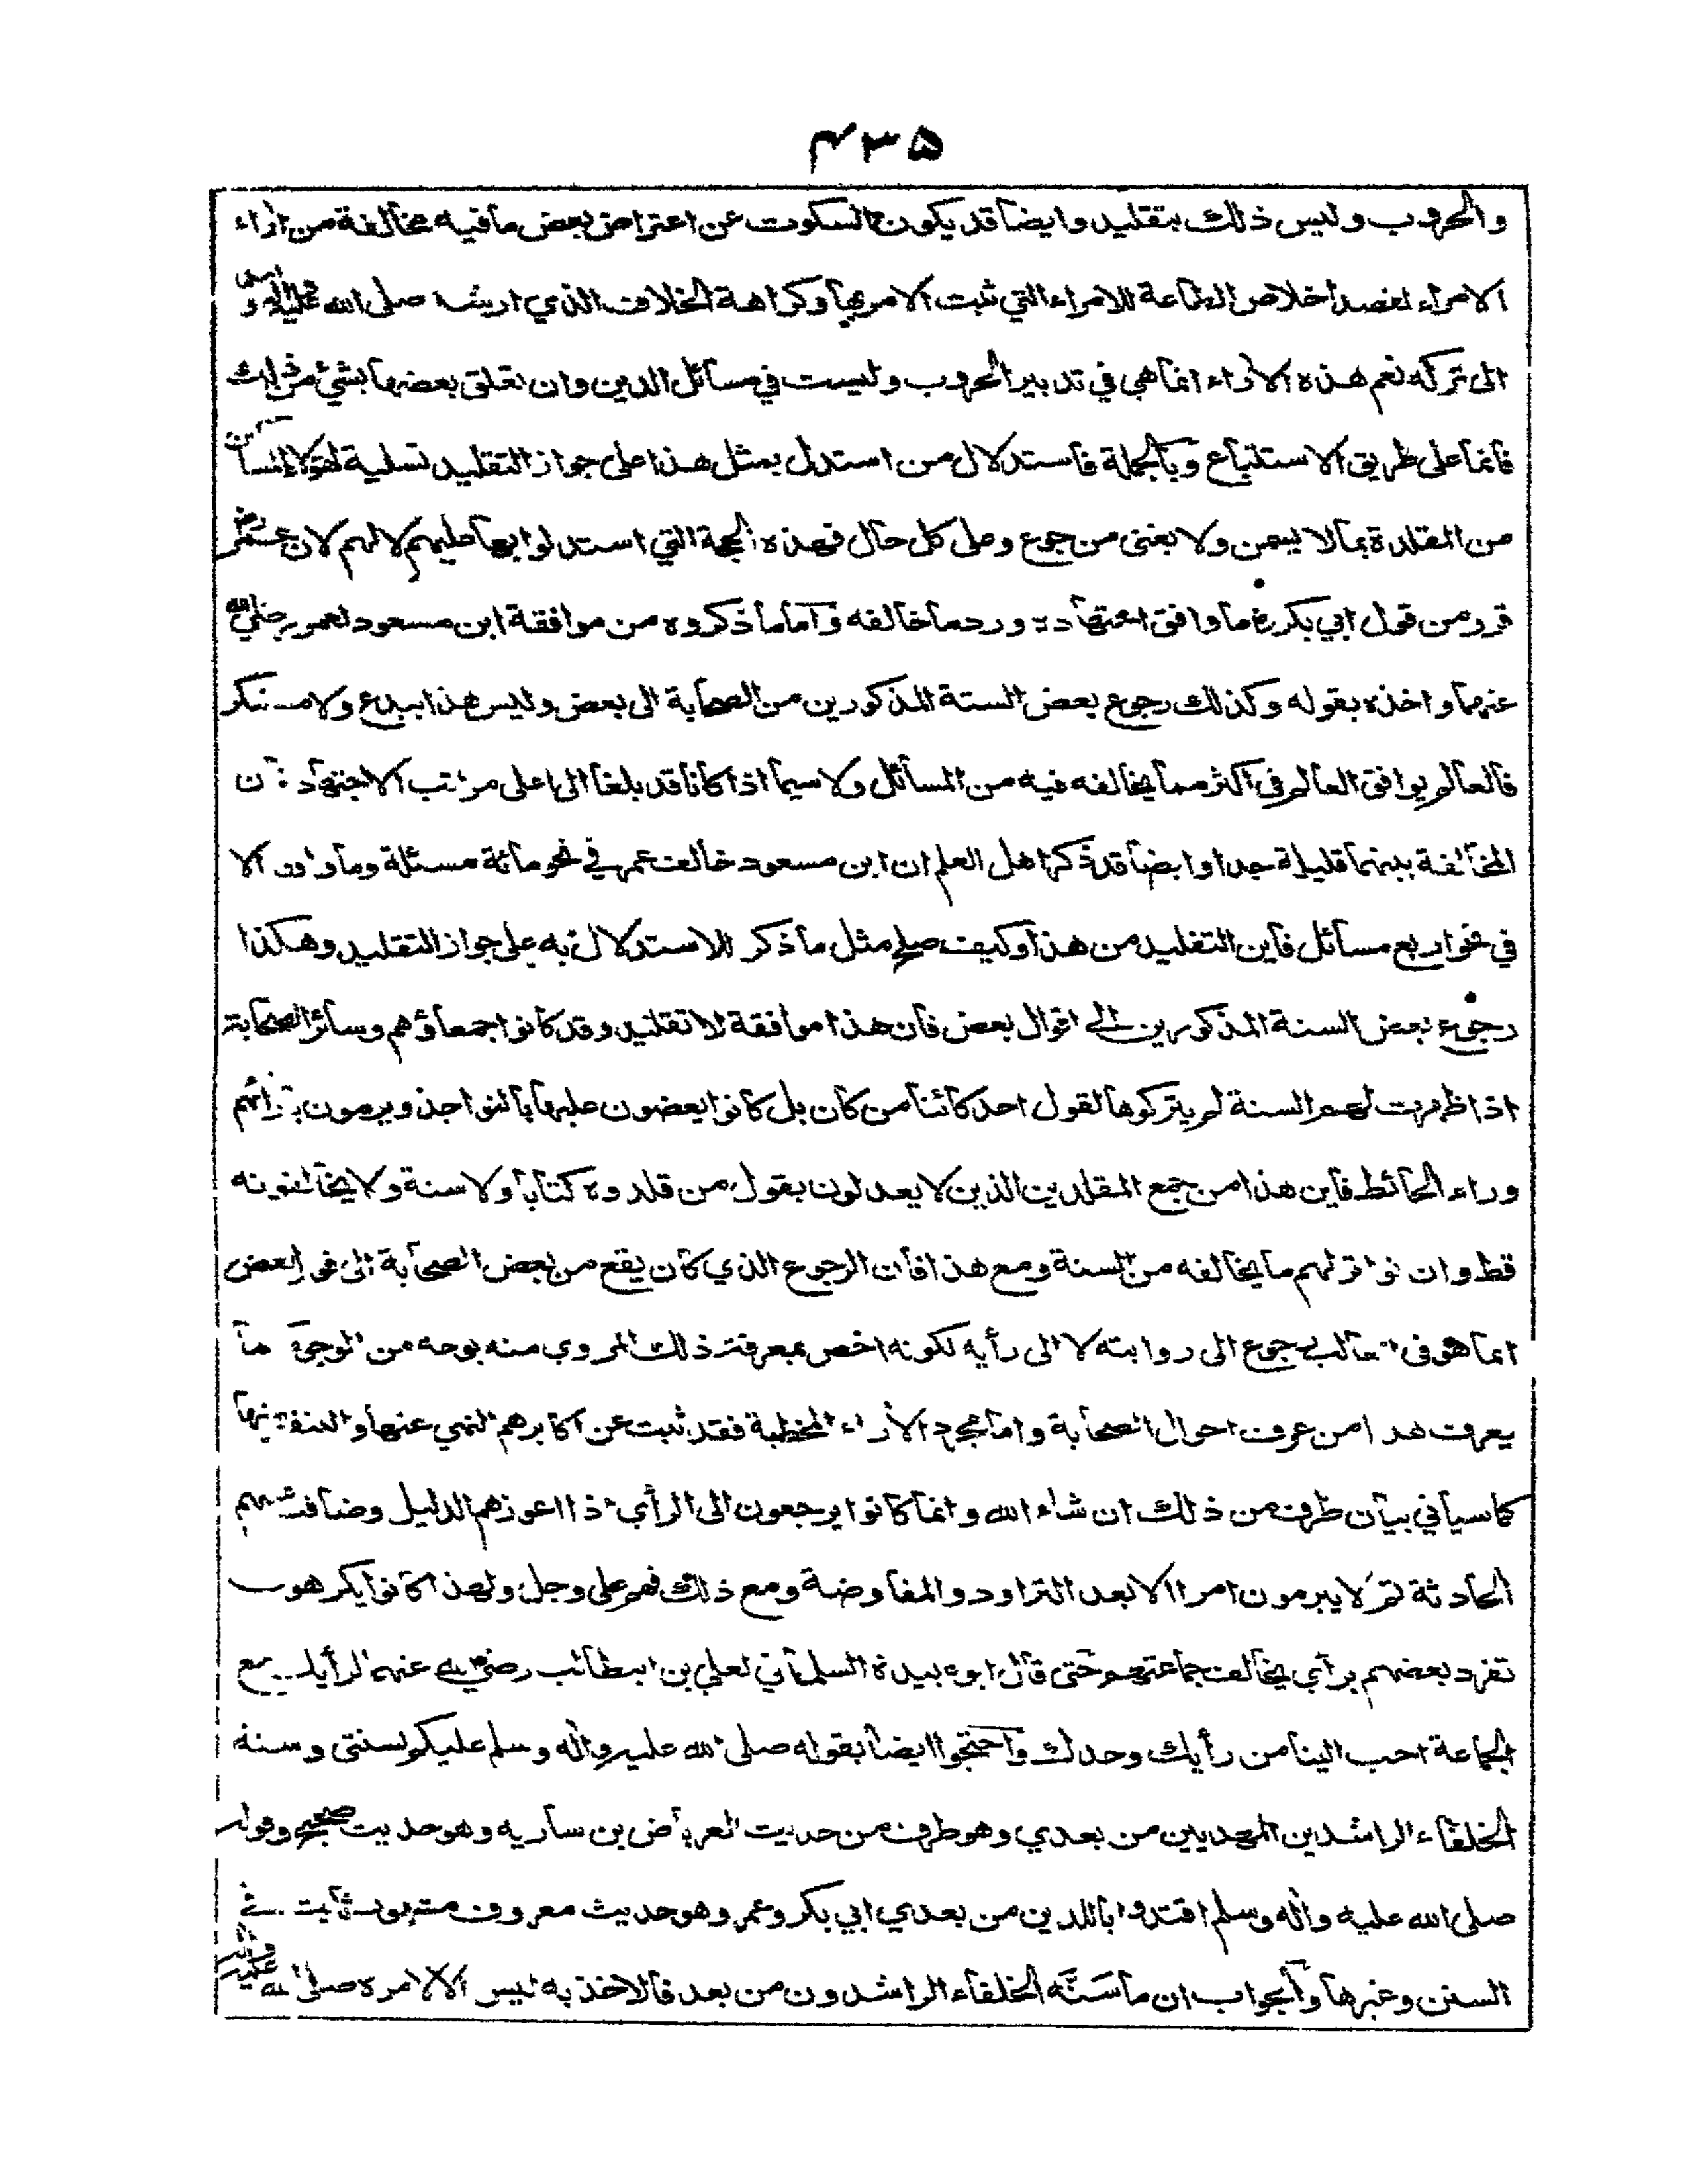 ۴۳۵
والحروب وليس ذلك بتقليد وايضا قد يكون السكوت عن اعتراض بعض ما فيه مخالفة من اراء
الامراء لقصد اخلاص الطاعة للامراء التي ثبت الامر بها وكراهة الخلاف الذي ارشد صلى الله عليه واله وسلم
الى تركه نعم هذه الاراء انما هي في تدبير الحروب وليست في مسائل الدين وان تعلق بعضها بشئ من ذلك
فانما على طريق الاستتباع وبالجملة فاستدلال من استدل بمثل هذا على جواز التقليد تسلية لهؤلاء المساكين
من المقلدة بما لا يسمن ولا يغنى من جوع وعلى كل حال فهذه الحجة التي استدلوا بها عليهم لا لهم لان عمر رض
قرر من قول ابي بكر رض ما وافق اجتهاده ورد ما خالفه واما ما ذكروه من موافقة ابن مسعود لعمر رضي الله
عنهما واخذه بقوله وكذلك رجوع بعض الستة المذكورين من الصحابة الى بعض وليس هذا ببدع ولا مستنكر
فالعالم يوافق العالم في اكثر مما يخالفه فيه من المسائل ولا سيما اذا كانا قد بلغا الى اعلى مراتب الاجتهاد فان
المخالفة بينهما قليلة جدا وايضا قد ذكر اهل العلم ان ابن مسعود خالف عمر في نحو مائة مسئلة وما وافقه الا
في نحو اربع مسائل فاين التقليد من هذا وكيف صلح مثل ما ذكر للاستدلال به على جواز التقليد وهكذا
رجوع بعض الستة المذكورين الى اقوال بعض فان هذا موافقة لا تقليد وقد كانوا جميعا هم وسائر الصحابة
اذا ظهرت لهم السنة لم يتركوها لقول احد كائنا من كان بل كانوا يعضون عليها بالنواجذ ويرمون بآرائهم
وراء الحائط فاين هذا من جمع المقلدين الذين لا يعدلون بقول من قلدوه كتابا ولا سنة ولا يخالفونه
قط وان تواتر لهم ما يخالفه من السنة ومع هذا فان الرجوع الذي كان يقع من بعض الصحابة الى قول بعض
انما هو في الغالب رجوع الى روايته لا الى رأيه لكونه اخص بمعرفة ذلك المروي منه بوجه من الوجوه كما
يعرف هذا من عرف احوال الصحابة واما مجرد الأراء المخطئة فقد ثبت عن اكابرهم النهي عنها والتنفير منها
كما سيأتي بيان طرف من ذلك ان شاء الله وانما كانوا يرجعون الى الرأي اذا اعوزهم الدليل وضاقت عليهم
الحادثة ثم لا يبرمون امرا الا بعد التراود والمفاوضة ومع ذلك فهم على وجل ولهذا كانوا يكرهون
تفرد بعضهم برأي يخالف جماعتهم حتى قال ابو عبيدة السلماني لعلي بن ابيطالب رضي الله عنه لرأيك مع
الجماعة احب الينا من رأيك وحدك واحتجوا ايضا بقوله صلى الله عليه واله وسلم عليكم بسنتى وسنة
الخلفاء الراشدين المهديين من بعدي وهو طرف من حديث العرباض بن سارية وهو حديث صحيح وقوله
صلى الله عليه واله وسلم اقتدوا بالذين من بعدي ابي بكر وعمر وهو حديث معروف مشهور ثابت في
السنن وغيرها والجواب ان ما سَنَّه الخلفاء الراشدون من بعد فالاخذ به ليس الا لامره صلى الله عليه واله